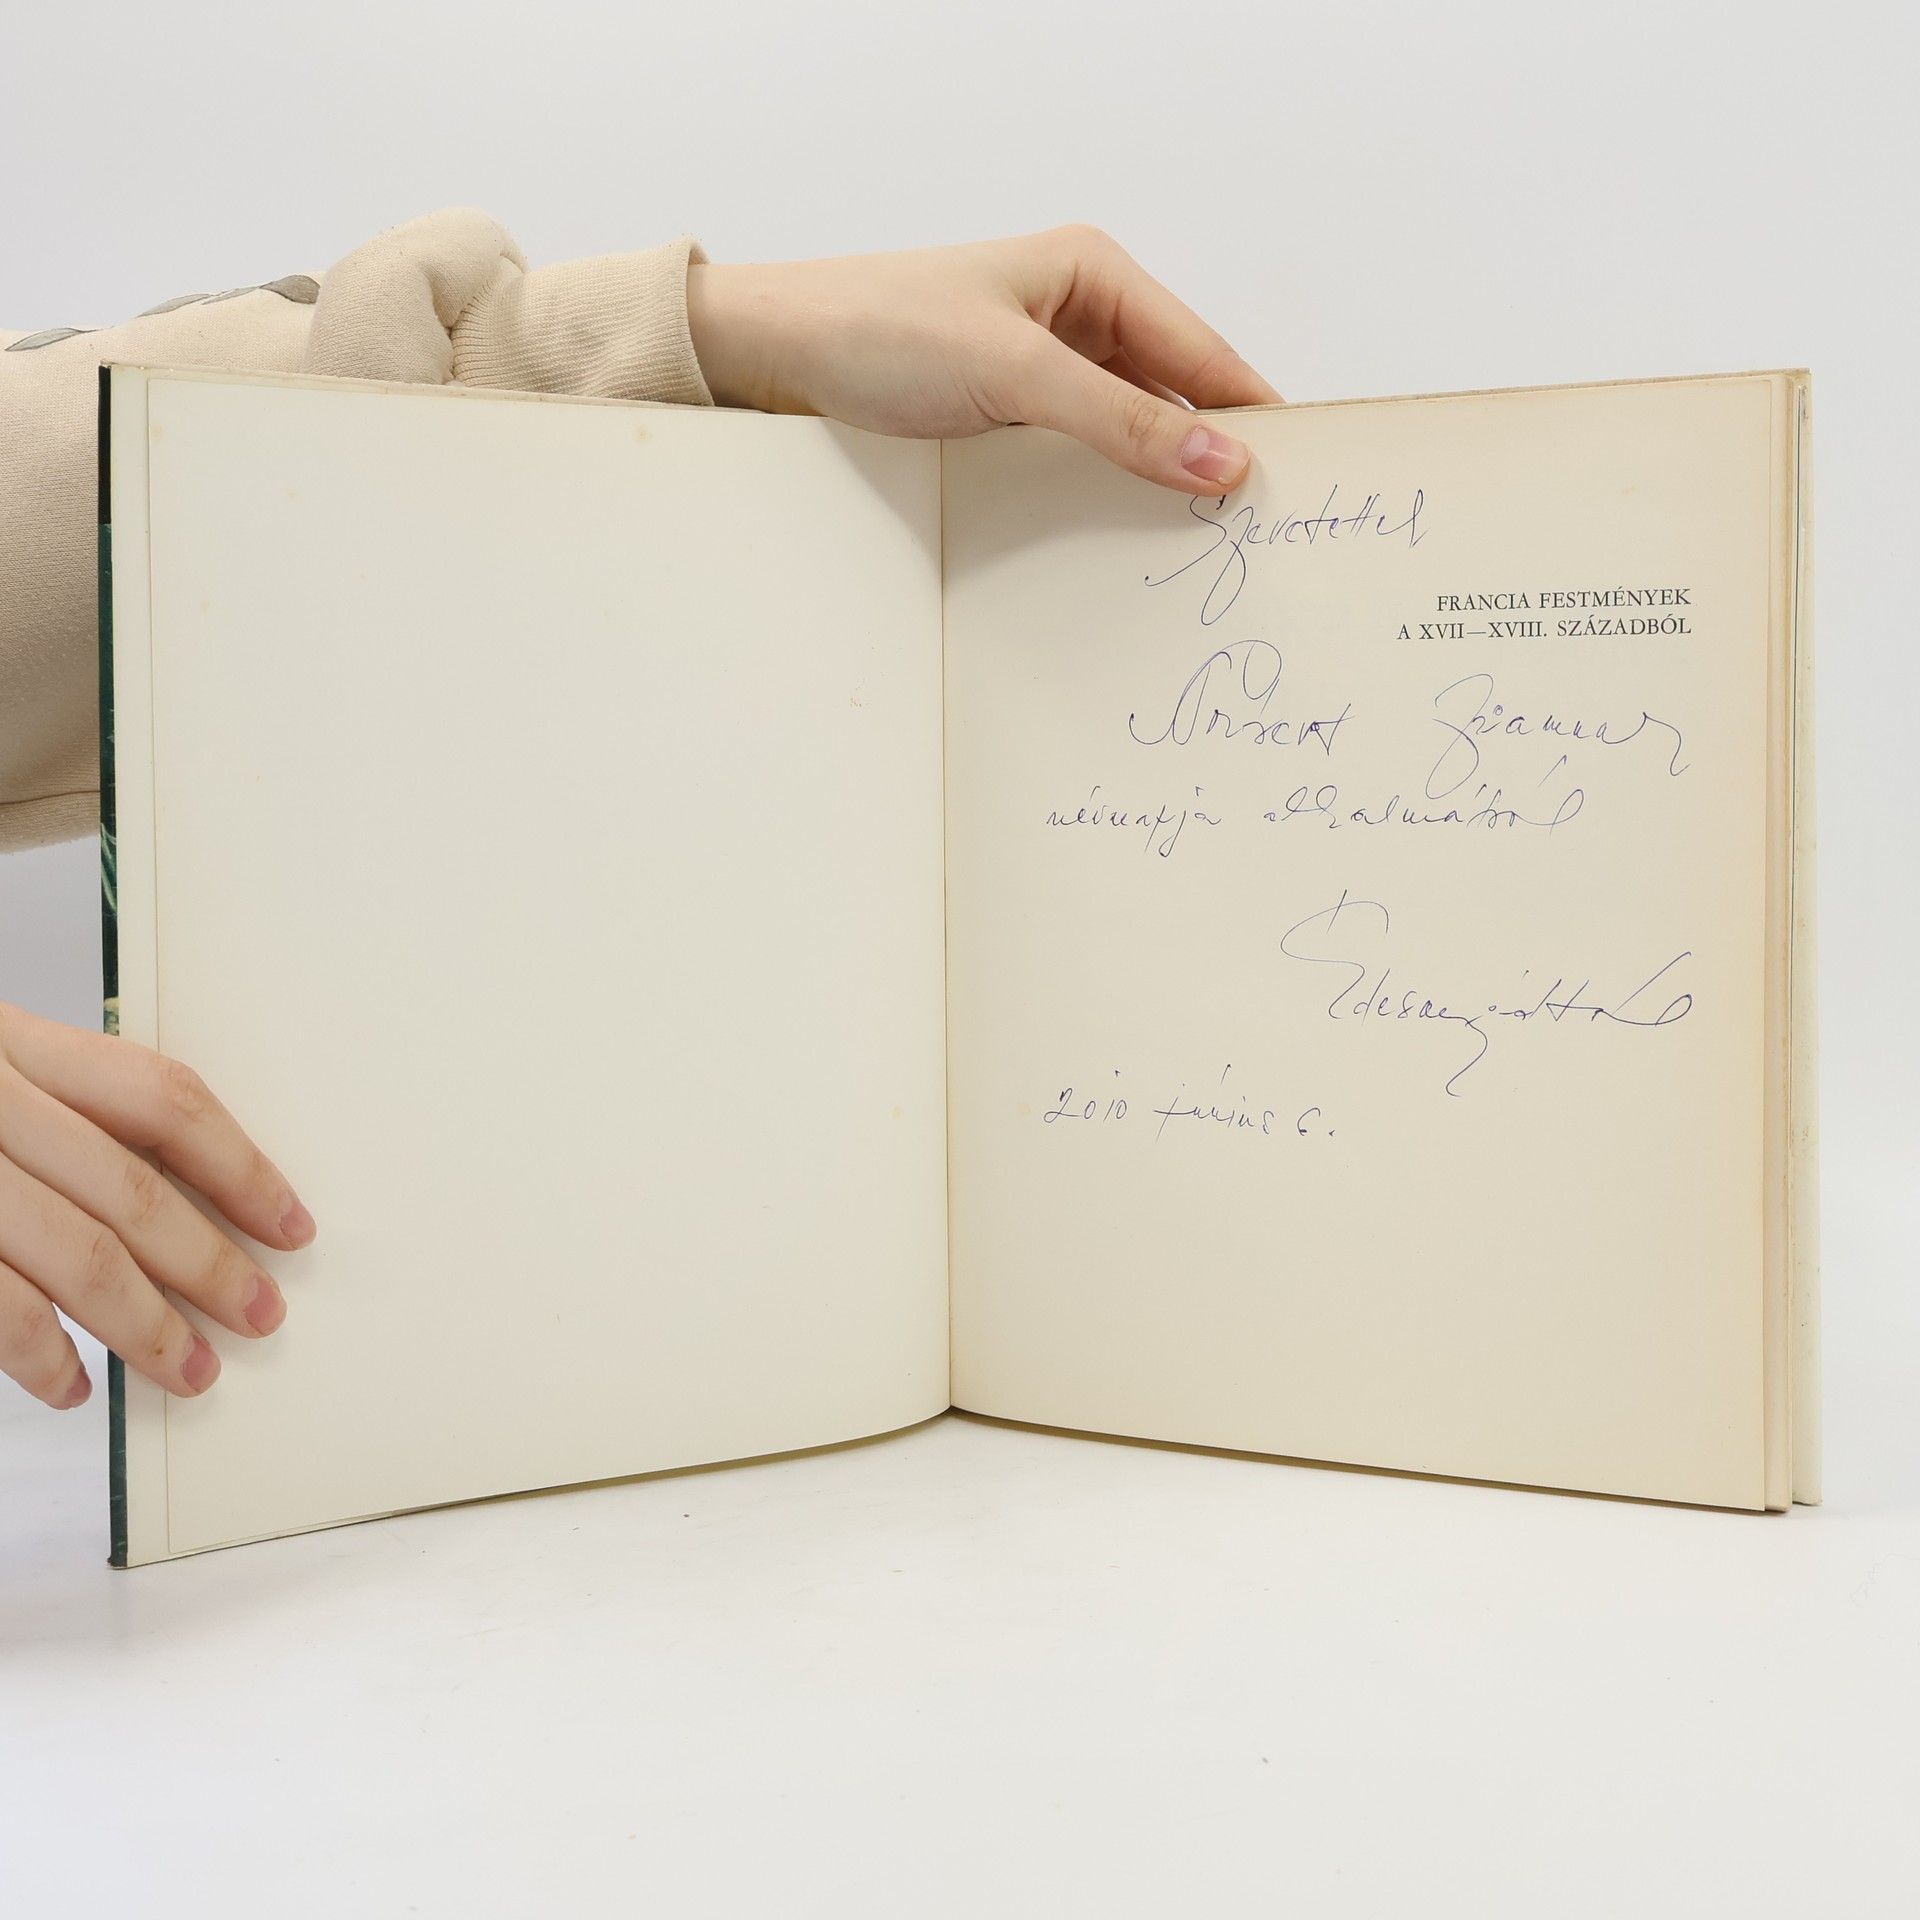 Szeretettel
FRANCIA FESTMÉNYEK
A XVII—XVIII. SZÁZADBÓL
Norbert fiamnak
névnapja alkalmából
Édesanyádtól
2010 június 6.